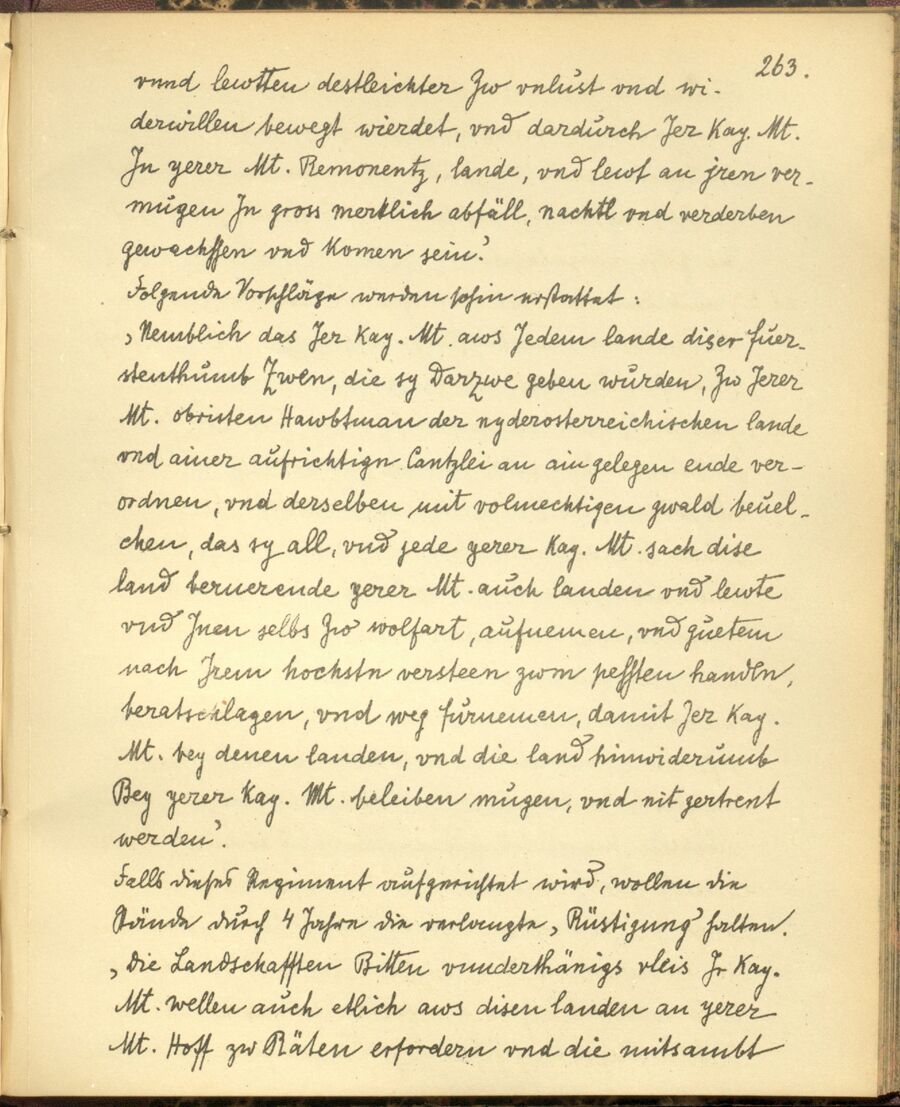 263.
vnnd lewtten destleichter Zw vnlust vnd wi-
derwillen bewegt wierdet, vnd dardurch Jer Kay. Mt.
In yerer Mt. Remonentz, lande, vnd lewt an jren ver-
mugen In gross merklich abfäll, nachtl vnd verderben
gewachssen vnd Komen sein'.
Folgende Vorschläge werden sohin erstattet:
‚Nemblich das Jer Kay. Mt. aws Jedem lande diser fuer-
stenthumb Zwen, die sy Darzwe geben wurden, Zw Jerer
Mt. obristen Hawbtman der nyderosterreichischen lande
vnd ainer aufrichtign Cantzlei an ain gelegen ende ver-
ordnen, vnd derselben mit volmechtigen gwald beuel-
chen, das sy all, vnd jede yerer Kay. Mt. sach dise
land beruerende yerer Mt. auch landen vnd lewte
vnd Inen selbs Zw wolfart, aufnemen, vnd guetem
nach Irem hochstn versteen zwm pessten handln,
beratschlagen, vnd weg furnemen, damit Jer Kay.
Mt. bey denen landen, vnd die land hinwiderumb
Bey yerer Kay. Mt. beleiben mugen, vnd nit zertrent
werden'.
Falls dieses Regiment aufgerichtet wird, wollen die
Stände durch 4 Jahre die verlangte ‚Rüstigung' halten.
‚Die Landschafften Bitten vnnderthänigs vleis Jr Kay.
Mt. wellen auch etlich aws disen landen an yerer
Mt. Hoff zw Räten erfordern vnd die mitsambt